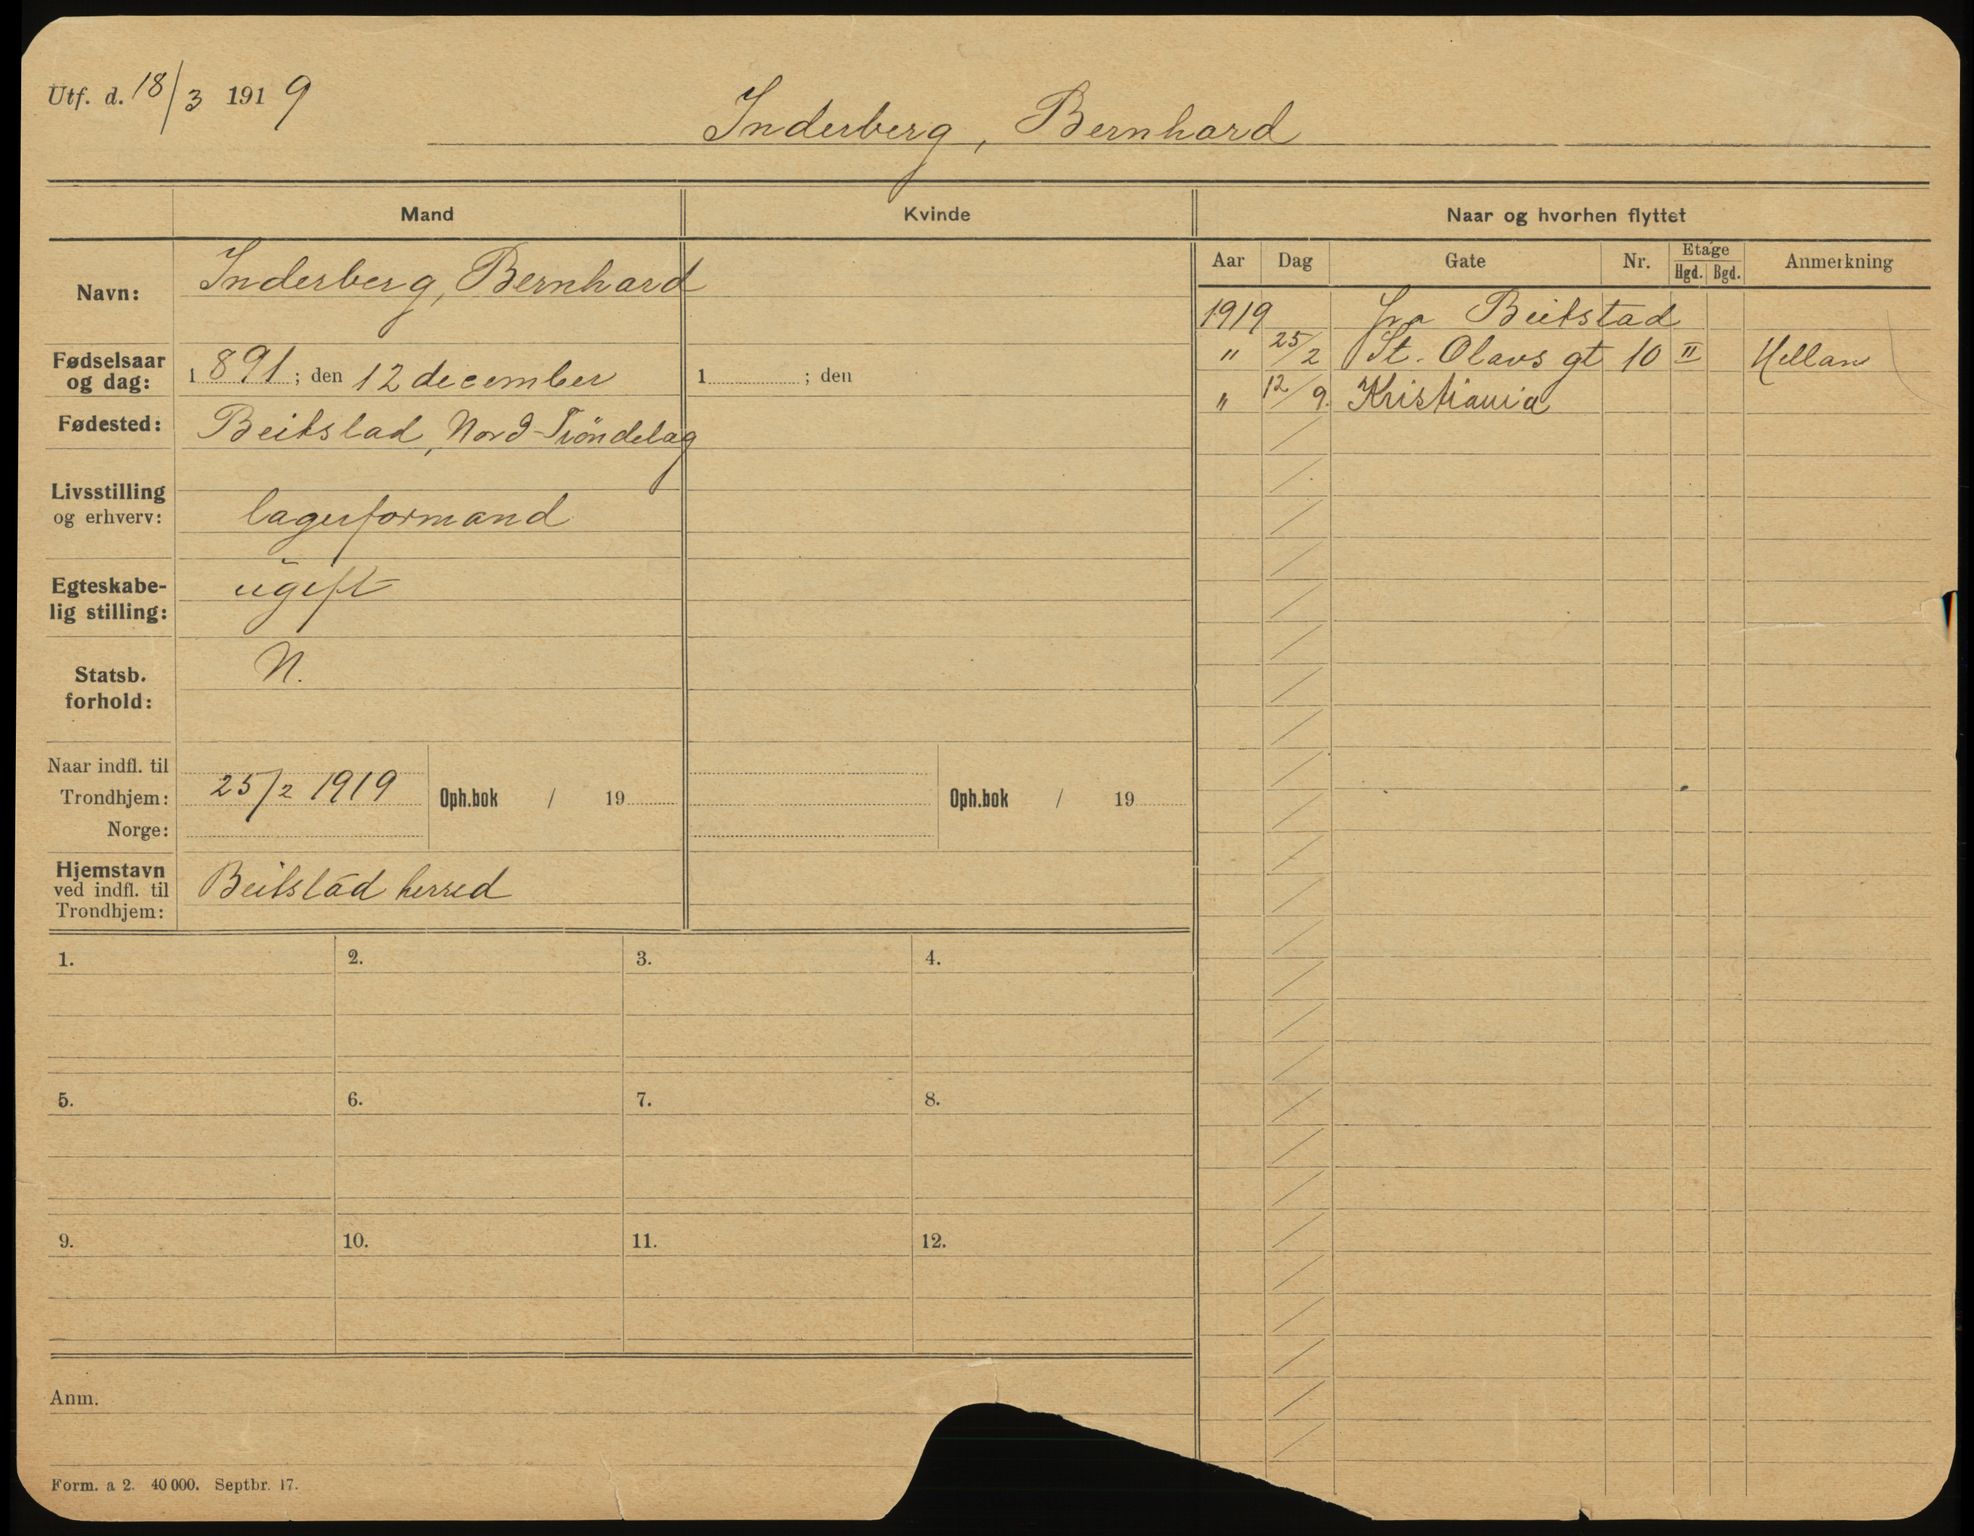 Utf. d. 18/3 1919
Inderberg, Bernhard
Mand
Kvinde
Naar og hvorhen flyttet
Aar Dag Gate Nr. Etage Hgd. Bgd. Anmerkning
Navn: Inderberg, Bernhard
Fødselsaar og dag: 1891; den 12 december
1 ; den
Fødested: Beitstad, Nord-Tröndelag
Livsstilling og erhverv: lagerformand
Egteskabelig stilling: ugift
Statsb. forhold: N.
Naar indfl. til
Trondhjem: 25/2 1919 Oph.bok / 19
Oph.bok / 19
Norge:
Hjemstavn ved indfl. til Trondhjem: Beitstad herred
1919 fra Beitstad
" 25/2 St. Olavs gt 10 II Hellan
" 12/9. Kristiania
1. 2. 3. 4.
5. 6. 7. 8.
9. 10. 11. 12.
Anm.
Form. a 2. 40 000. Septbr. 17.